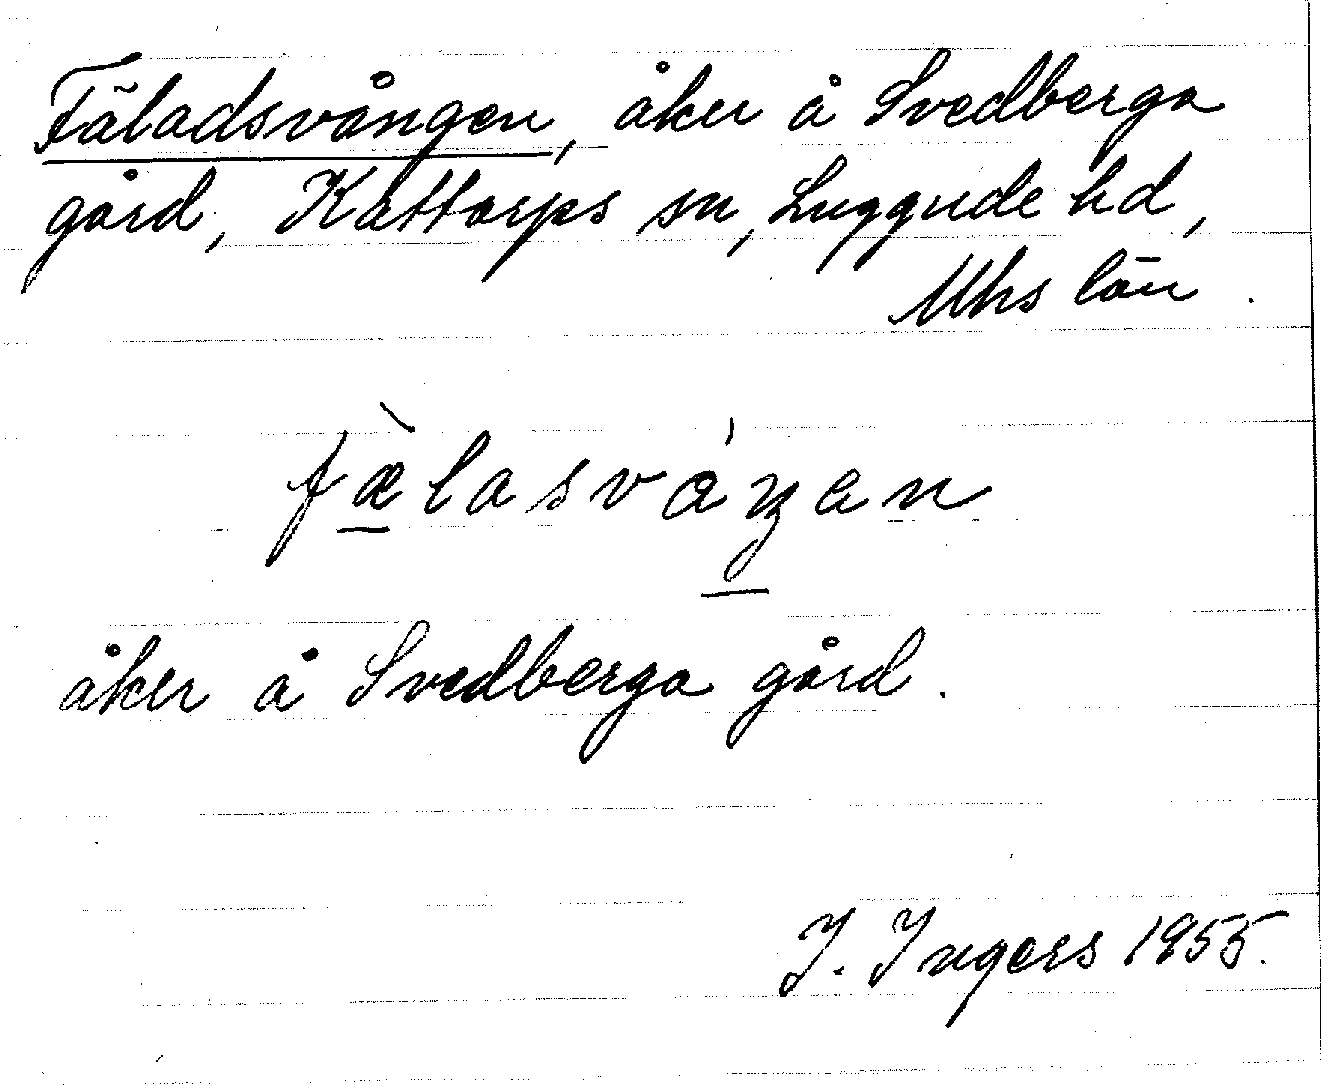 Fäladsvången, åker å Svedberga
gård, Kattarps sn, Luggude hd,
Mhs län.
fæ̀lasváŋan
åker å Svedberga gård.
I. Ingers 1955.